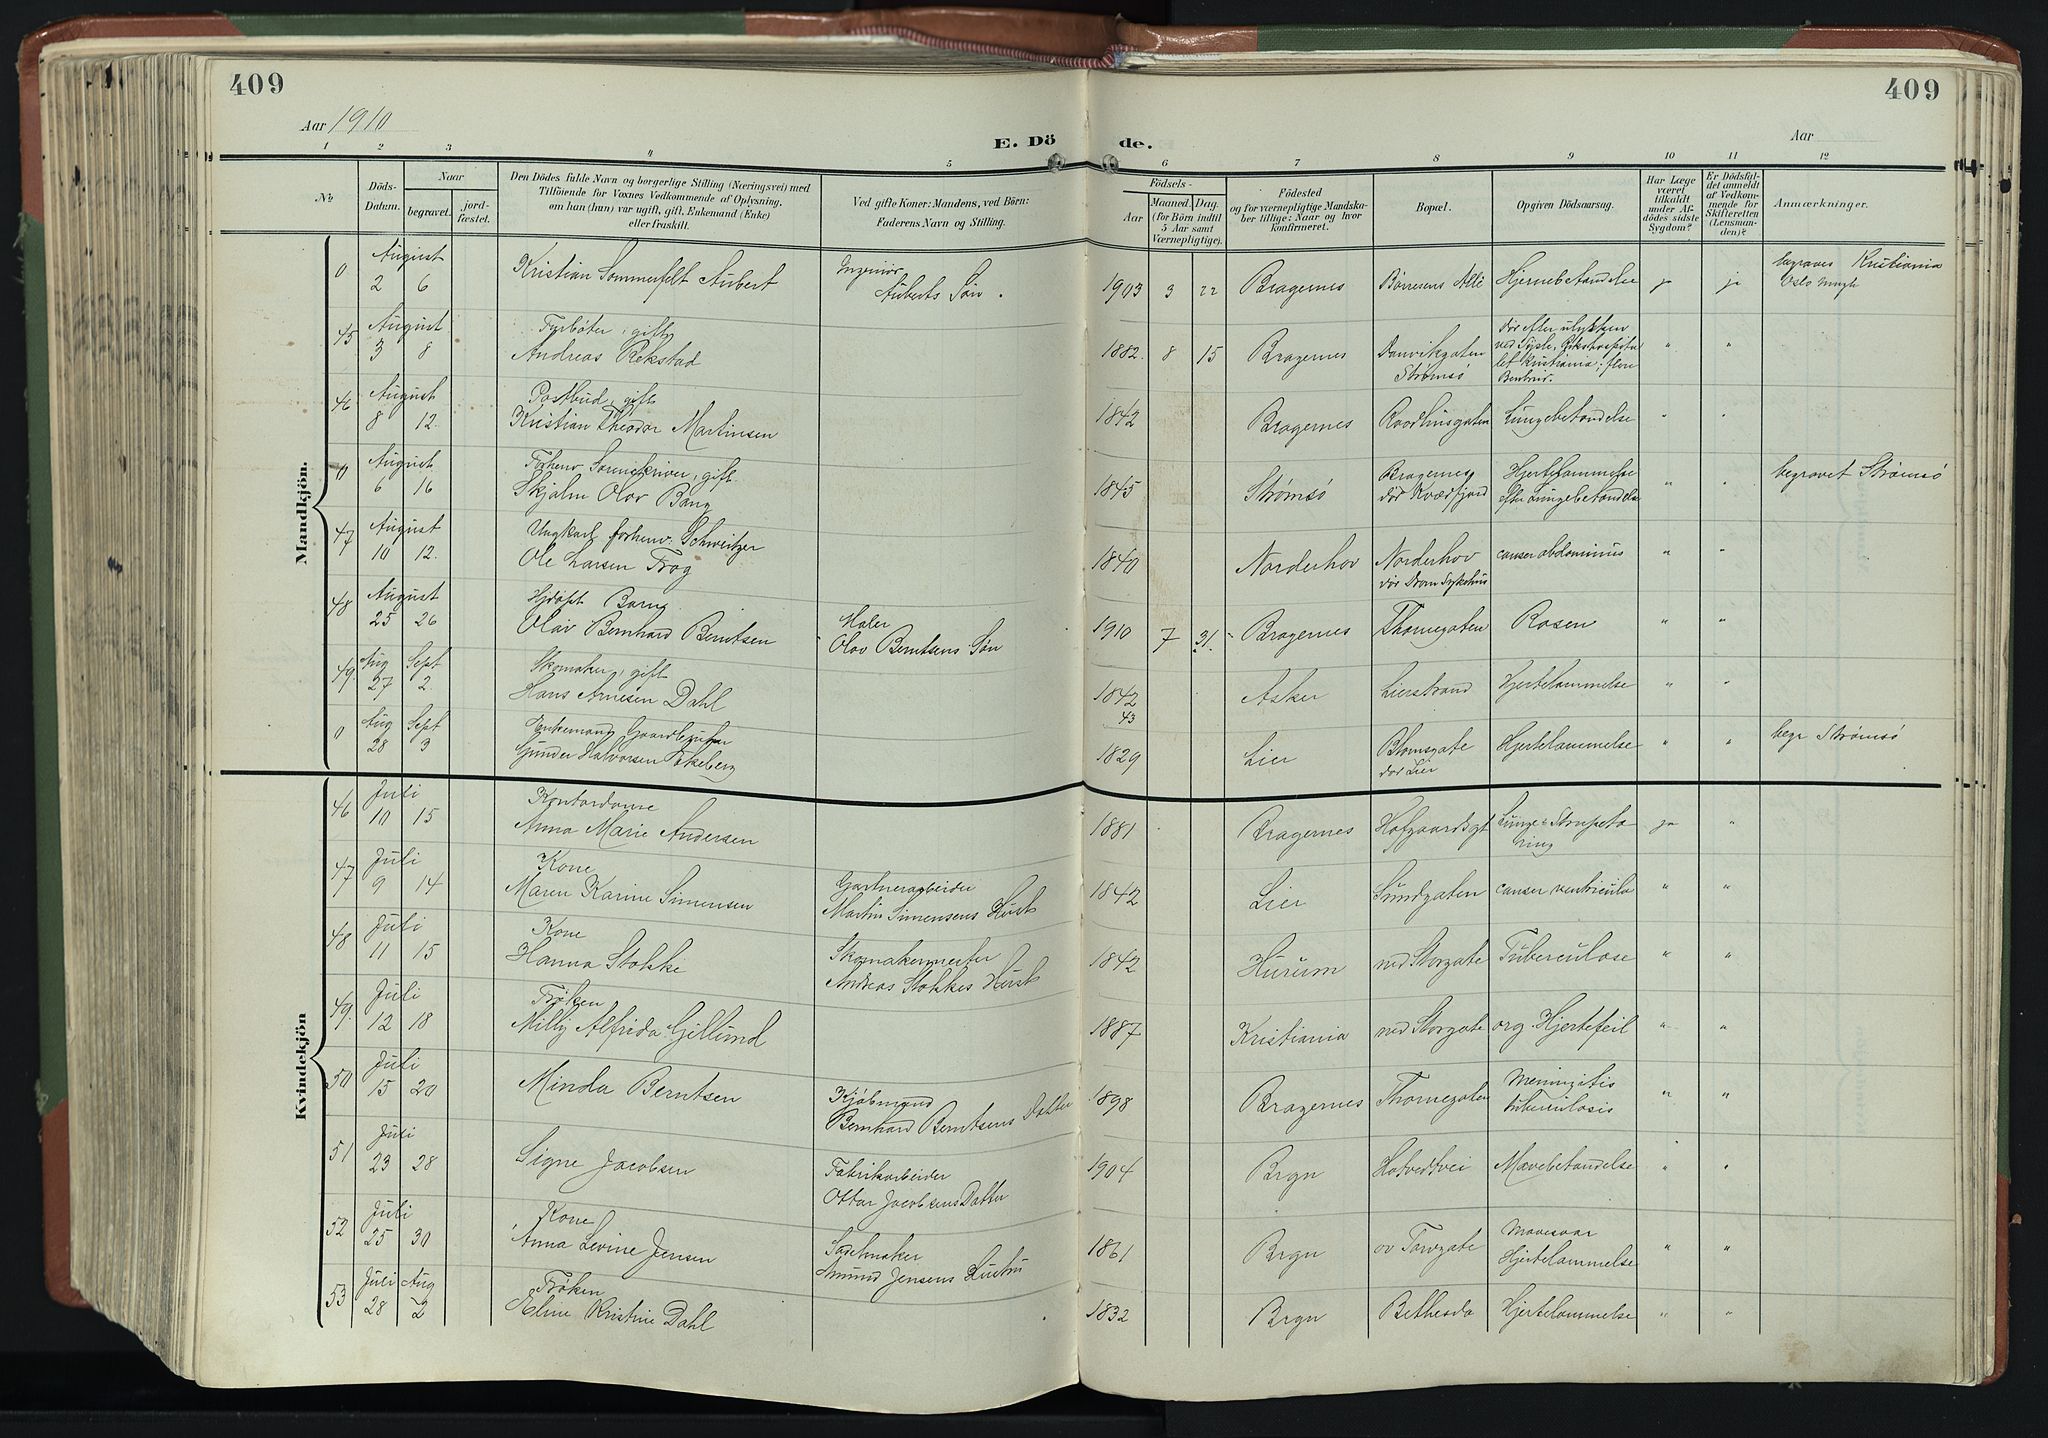 409
409
Aar 1910
E. Dö
de.
Aar
1 2 3 4 5 6 7 8 9 10 11 12
No
Döds-
Datum.
Naar
begravet.
jord-
fæstet.
Den Dödes fulde Navn og borgerlige Stilling (Næringsvei) med
Tilföiende for Voxnes Vedkommende af Oplysning,
om han (hun) var ugift, gift, Enkemand (Enke)
eller fraskilt.
Ved gifte Koner: Mandens, ved Börn:
Faderens Navn og Stilling.
Födsels-
Aar
Maaned.
Dag.
(for Börn indtil
5 Aar samt
Værnepligtige).
Födested
og for værnepligtige Mandska-
ber tillige: Naar og hvor
konfirmeret.
Bopæl.
Opgiven Dödsaarsag.
Har Læge
været
tilkaldt
under Af-
dödes sidste
Sygdom?
Er Dödsfal-
det anmeldt
af Vedkom-
mende for
Skifteretten
(Lensman-
den)?
Anmærkninger.
Mandkjön.
0 August 2 6 Kristian Sommerfelt Aubert Ingeniør Auberts Søn. 1903 3 22 Bragernes Børresens Allé Hjernebetændelse ja ja begraves Kristiania Oslo
45 August 3 8 Fyrbøter, gift Andreas Rekstad 1882 8 15 Bragernes Danvikgaten Strømsø dør efter ulykken ved Rikshospita let Kristiania; " "
46 August 8 12. Postbud, gift Kristian Theodor Martinsen 1842 Bragernes Raadhusgaten Lungebetændelse " "
0 August 6 16 Forhenv Sorenskriver, gift Skjalm Olav Bang 1845 Strømsø Bragernes dør Kvædfjord Hjertelammelse efter Lungebetændelse " " begravet Strømsø
47 August 10 12. Ungkarl forhenv. Schweitzer Ole Larsen Frog 1840 Norderhov Norderhov dør Dram Sykehus canser abdominius " "
48 August 25 26 Hjdøpt Barn Olav Bernhard Berntsen Maler Olav Berntsens Søn 1910 7 31 Bragernes Thornegaten Rosen " "
49. Aug 27 Sept 2. Skomaker, gift Hans Arnesen Dahl 1842 43 Asker Lierstrand Hjertelammelse " "
0 Aug 28 Sept 3 Enkemand, Gaardbruker Gunder Halvorsen Ekeberg 1829 Lier Blomsgate dør Lier Hjertelammelse " " begr Strømsø
Kvindekjön
46 Juli 10 15 Kontordame Anna Marie Andersen 1881 Bragernes Hofgaardsgt Lunge & Strupetæ ring ja "
47 Juli 9 14 Kone Maren Karine Simensen Gartnerarbeider Martin Simensens Hust 1842 Lier Sundgaten canser ventricula " "
48 Juli 11 15 Kone Hanna Stokke Skomakermester Andreas Stokkes Hust 1842 Hurum ned Storgate Tuberculose " "
49. Juli 12 18 Frøken Milly Alfrida Gillund 1887 Kristiania ned Storgate org. Hjertefeil " "
50 Juli 15 20 Minda Berntsen Kjøbmand Bernhard Berntsens Datter 1898 Bragernes Thornegaten Meningitis tuberculosis " "
51 Juli 23 28 Signe Jacobsen Fabrikarbeider Ottar Jacobsens Datter 1904 Brgn Hotvedtvei Mavebetændelse " "
52 Juli 25 30 Kone Anna Levine Jensen Sadelmaker Amund Jensens Hustru 1861 Brgn ov Torvgate Mavesaar Hjertelammelse " "
53 Juli 28 Aug 2 Frøken Eline Kristine Dahl 1832 Brgn Bethesda Hjertelammelse " "